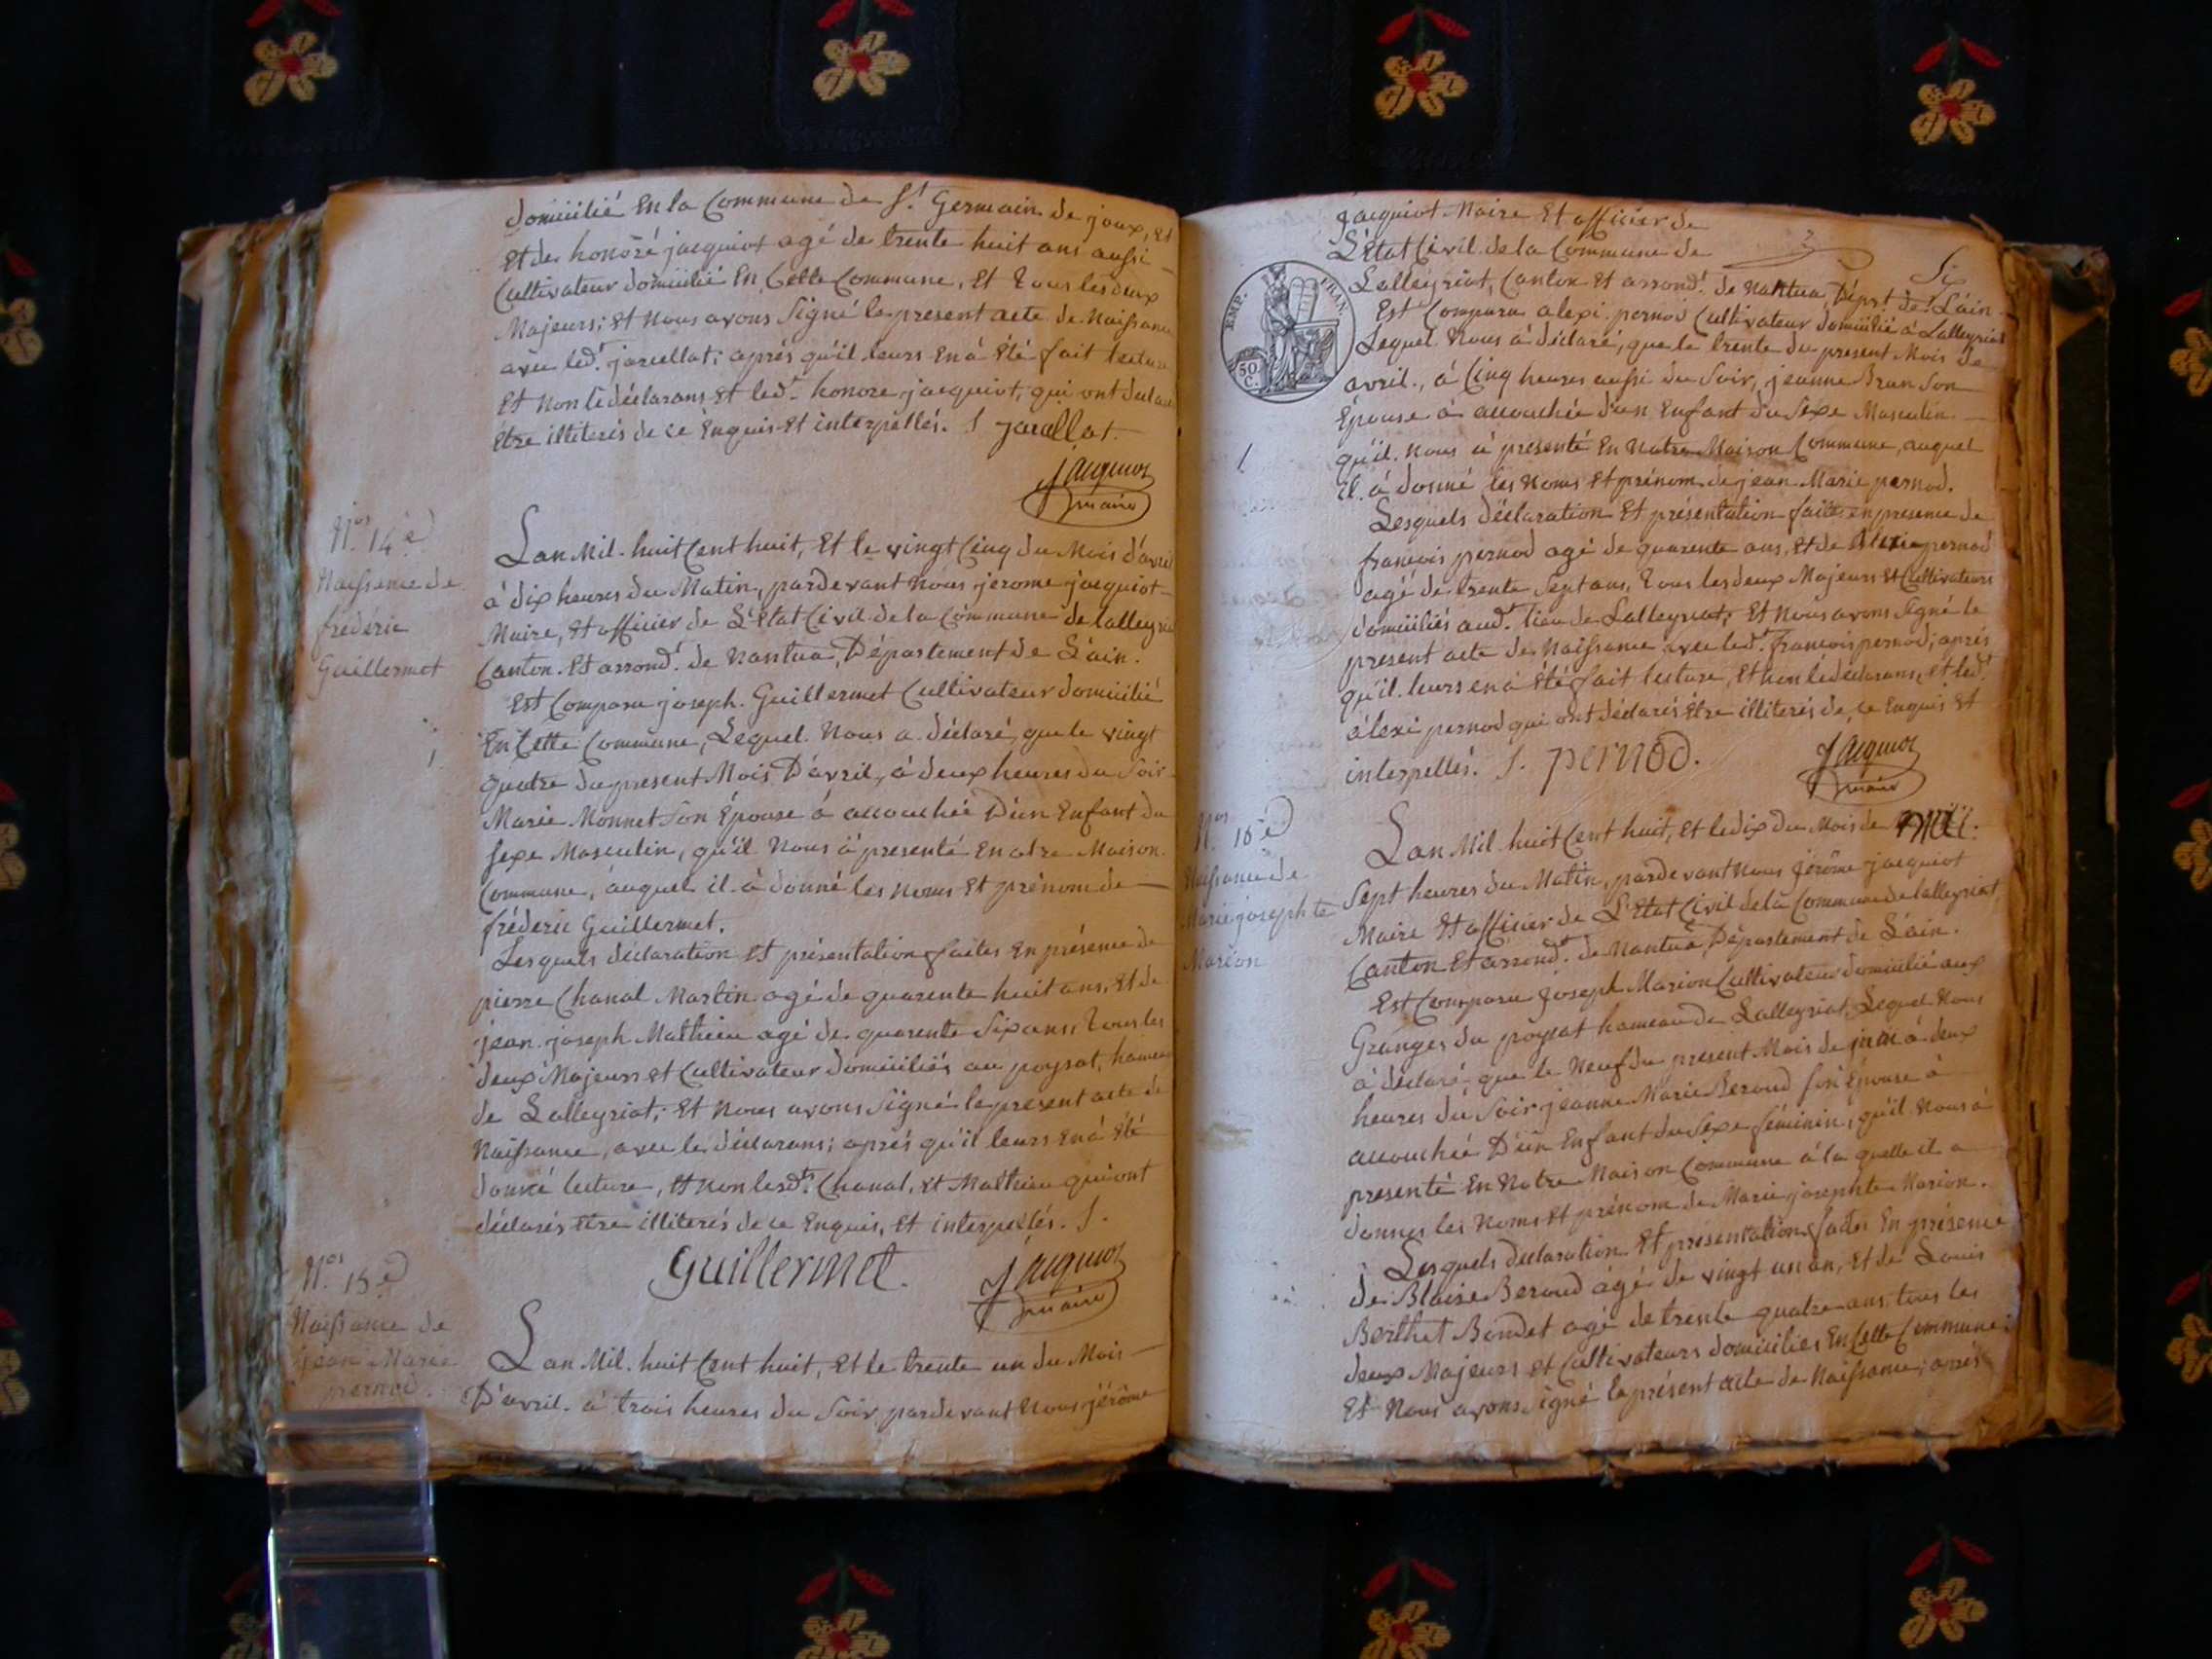 domicilié En la Commune de St. Germain de joux, Et
Et de honoré jacquiot agé de trente huit ans aussi
Cultivateur domicilié En Cette Commune, Et tous les deux
Majeurs; Et Nous avons Signé le present acte de Naissance
avec led. jarcellat; après qu'il leurs En á été fait lecture
Et Non le déclarans Et led. honore jacquiot, qui ont déclaré
Etre illiterés de ce Enquis Et interpellés. S jarcellat.
jacquiot
maire
Nos. 14e
Naissance de
fréderic
Guillermet
Lan Mil-huit Cent huit, Et le vingt Cinq du Mois d'avril
á dix heures du Matin, pardevant Nous jerome jacquiot
Maire, Et officier de L'Etat Civil de la Commune de lalleyriat
Canton Et arrond. de Nantua, Département de L'ain.
Est Comparu joseph Guillermet Cultivateur domicilié
En Cette Commune, Lequel Nous a déclaré, que le vingt
quatre du present Mois D'avril, á deux heures du Soir
Marie Monnet Son Épouse á accouchée D'un Enfant du
Sexe Masculin, qu'il Nous á presenté En notre Maison
Commune, auquel il á donné les Noms Et prénom de
fréderic Guillermet.
Lesquels déclaration Et présentation faites En présence de
pierre Chanal Martin agé de quarente huit ans, Et de
jean joseph Mathieu agé de quarente Six ans, tous les
deux Majeurs et Cultivateur domiciliés au poysat, hameau
de Lalleyriat; Et Nous avons Signé le present acte de
Naissance, avec le déclarans; après qu'il leurs En á Été
donné lecture, Et Non lesdts. Chanal, Et Mathieu qui ont
déclarés etre illiterés de ce Enquis, Et interpellés. S.
Guillermet.
jacquiot
maire
Nos. 15e
Naissance de
jean Marie
pernod.
Lan Mil. huit Cent huit, Et le trente un du Mois
D'avril. á trois heures du Soir pardevant Nous jérôme
jacquiot Maire Et officier de
L'Etat Civil de la Commune de
Lalleyriat, Canton Et arrond. de Nantua, Dépt. de L'ain
Six
EMP. FRAN.
50 C.
Est Comparu alexi pernod Cultivateur domicilié á Lalleyriat
Lequel Nous á déclaré, que le trente du present Mois de
avril., á Cinq heures aussi du Soir, jeanne Brun Son
Épouse á accouchée d'un Enfant du Sexe Masculin
qu'il Nous á presenté En Notre Maison Commune, auquel
il á donné les Noms Et prénom de jean Marie pernod.
Lesquels déclaration Et présentation faite en presence de
francois pernod agé de quarente ans, Et de Alexie pernod
agé de trente Sept ans, tous les deux Majeurs Et Cultivateurs
domiciliés aud. lieu de Lalleyriat; Et Nous avons Signé le
present acte de Naissance avec led. francois pernod; après
qu'il leurs en á été fait lecture, Et Non le déclarans, et led.
álexi pernod qui ont déclarés Etre illiterés de ce Enquis Et
interpellés. S. pernod.
jacquiot
maire
Nos. 16e
Naissance de
Marie josephte
Marion
Lan Mil. huit Cent huit, Et le dix du Mois de
Sept heures du Matin, pardevant Nous jérôme jacquiot
Maire Et officier de L'Etat Civil de la Commune de lalleyriat,
Canton Et arrond. de Nantua, Département de L'ain.
Est Comparu joseph Marion Cultivateur domicilié aux
Granges du poysat hameau de Lalleyriat, Lequel Nous
á déclaré, que le Neuf du present Mois de juin á deux
heures du Soir jeanne Marie Beroud Son Épouse á
accouchée D'un Enfant du Sexe féminin, qu'il Nous á
presenté En Notre Maison Commune á la quelle il a
donner les Noms Et prénom de Marie josephte Marion.
Lesquels déclaration Et présentation faites En présence
de Blaise Beroud agé de vingt un an, Et de Louis
Berthet Bondet agé de trente quatre ans tous les
deux Majeurs et Cultivateurs domiciliés En Cette Commune;
Et Nous avons Signé le présent acte de Naissance, après